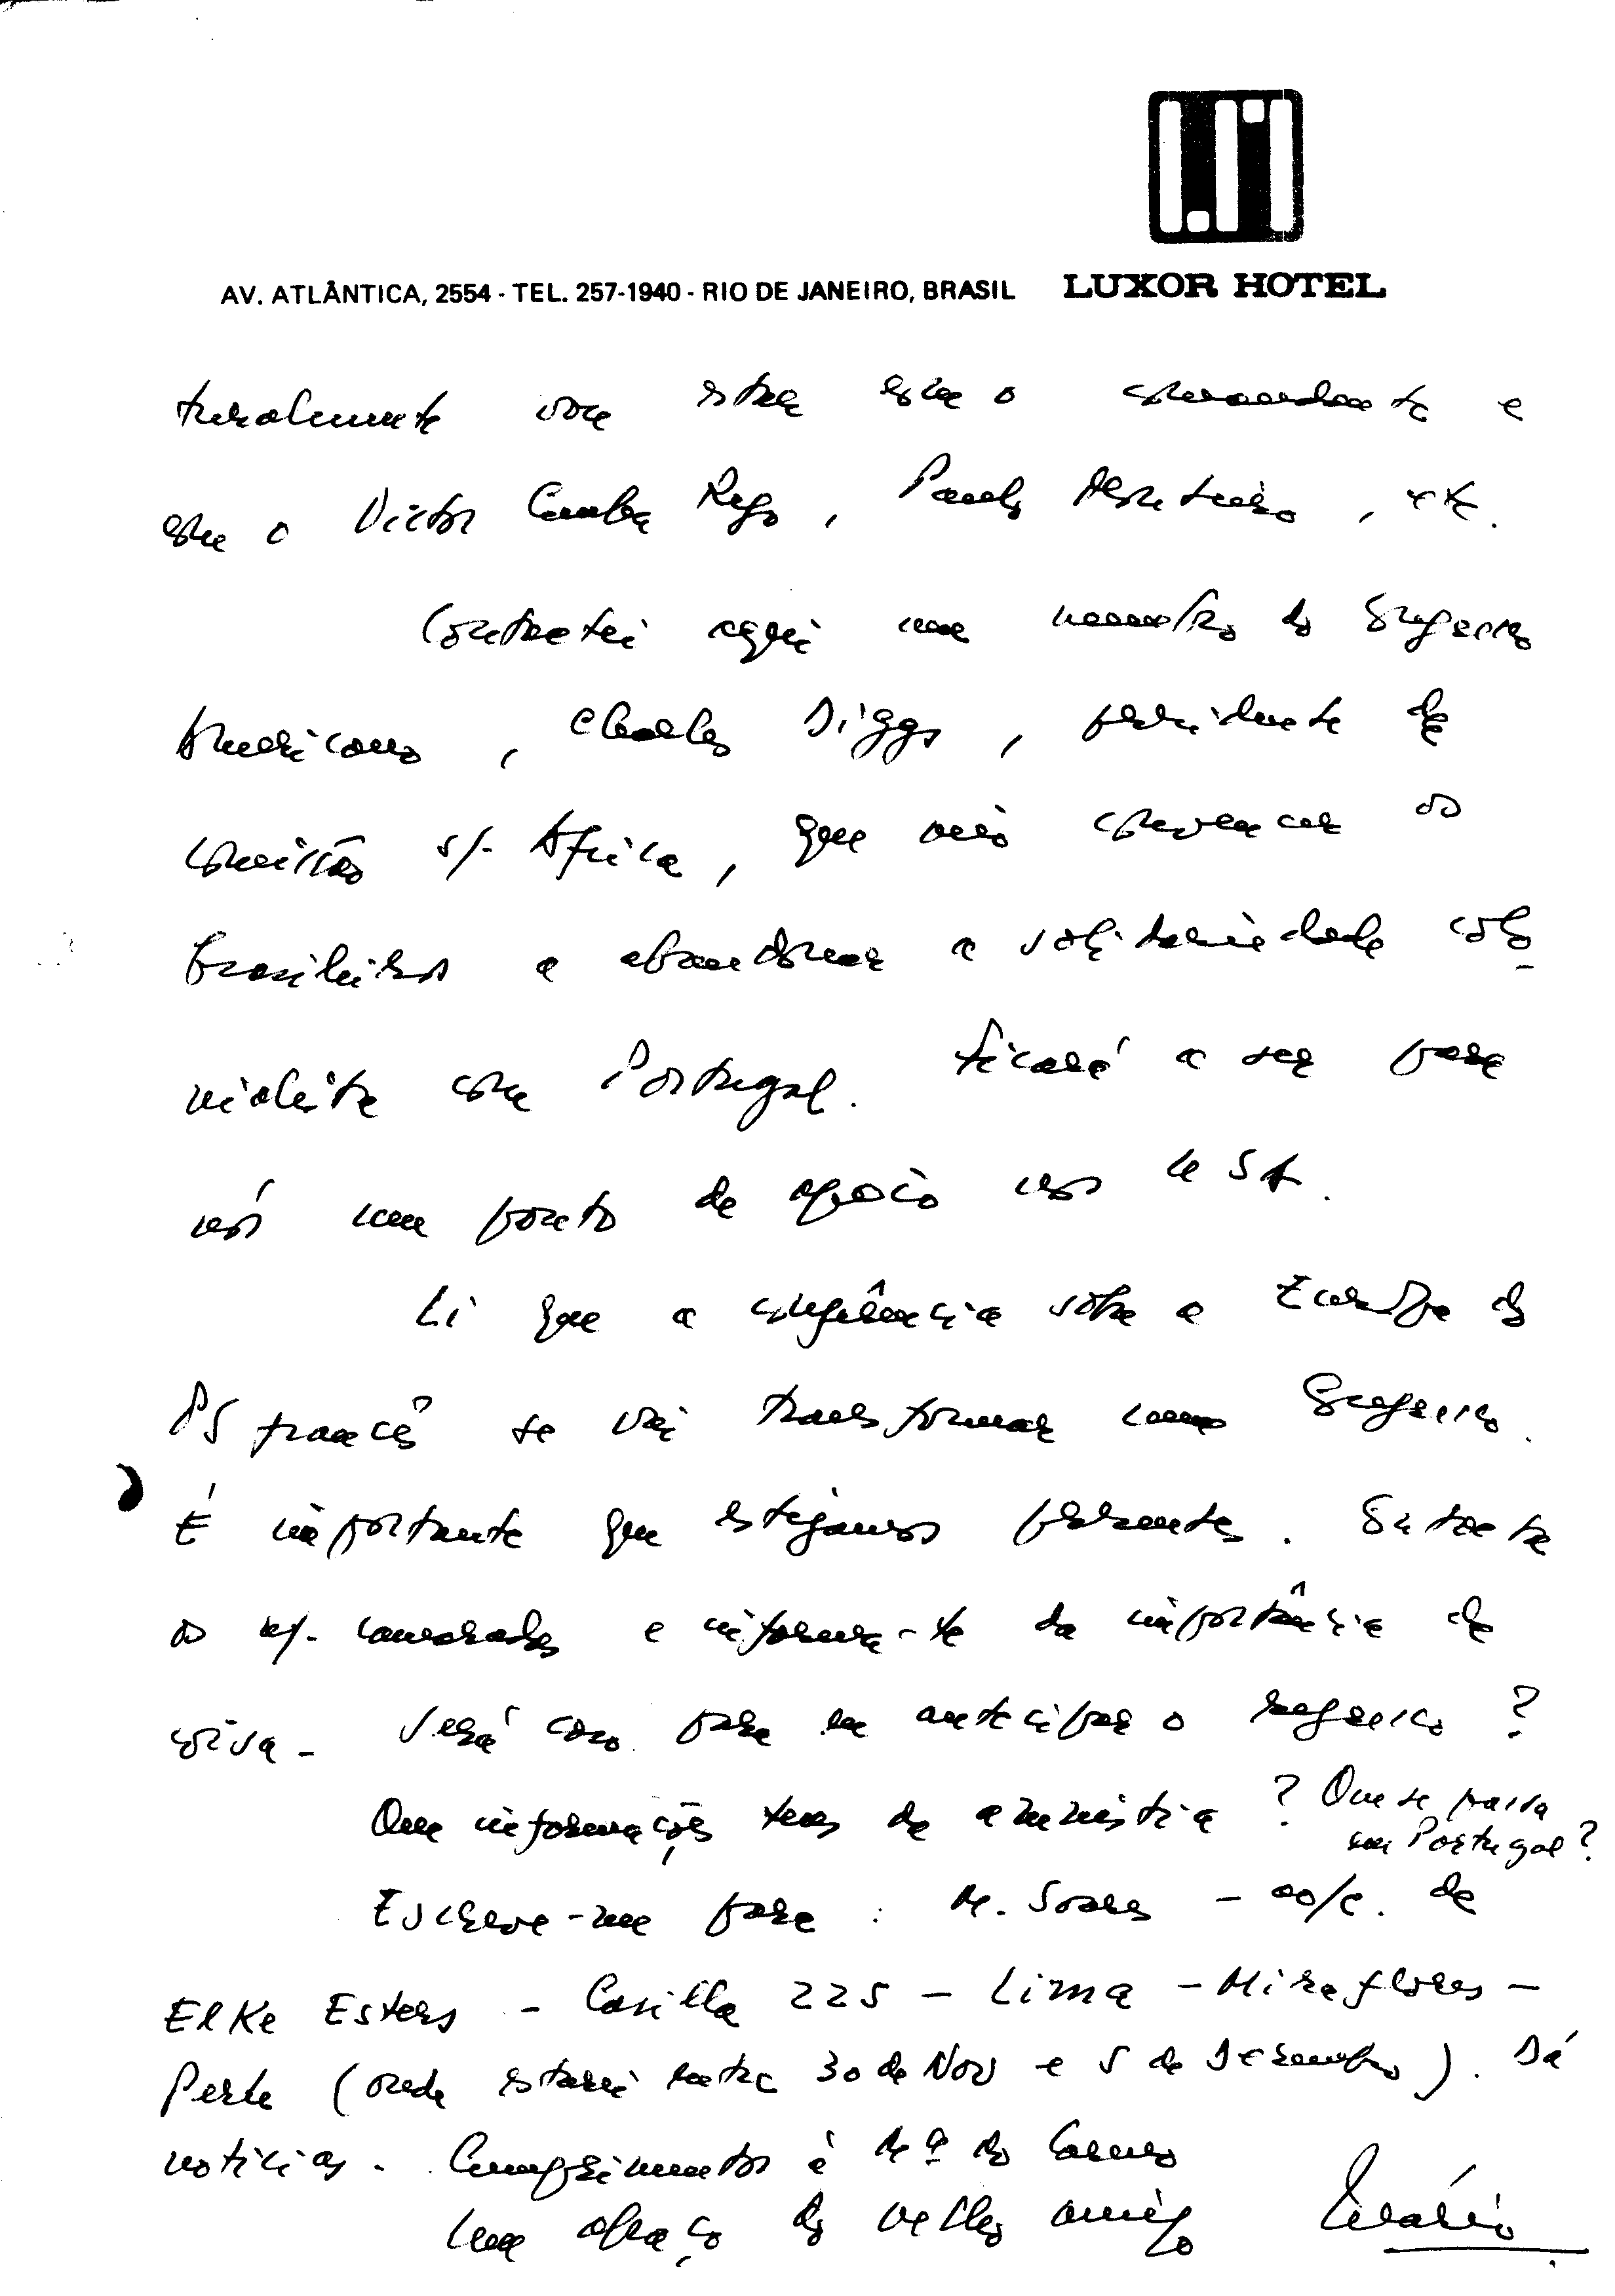 LUXOR HOTEL
AV. ATLÂNTICA, 2554 - TEL. 257-1940 - RIO DE JANEIRO, BRASIL
turalmente vou estar com o comandante e
com o Victor Cunha Rego, Paulo, etc.
Contactei aqui um membro do Congresso
Americano, Charles Diggs, presidente da
comissão s/. África, que veio convencer os
brasileiros a abandonar a solidariedade colo-
nialista com Portugal. Ficará a ser para
nós um ponto de apoio nos USA.
Li que a conferência sobre a Europa do
PS francês se vai transformar num Congresso.
É importante que estejamos presentes. Contacta
os n/. camaradas e informa-te da importância da
coisa - Será caso para se antecipar o regresso?
Que informações tens da amnistia? Que se passa
em Portugal?
Escreve-me para: M. Soares - ao/c. de
Elke Esters - Casilla 225 - Lima - Miraflores -
Peru (onde estarei entre 30 de Nov e 5 de Dezembro). Dá
notícias. Cumprimentos à M.ª do Carmo
Um abraço do velho amigo Mário